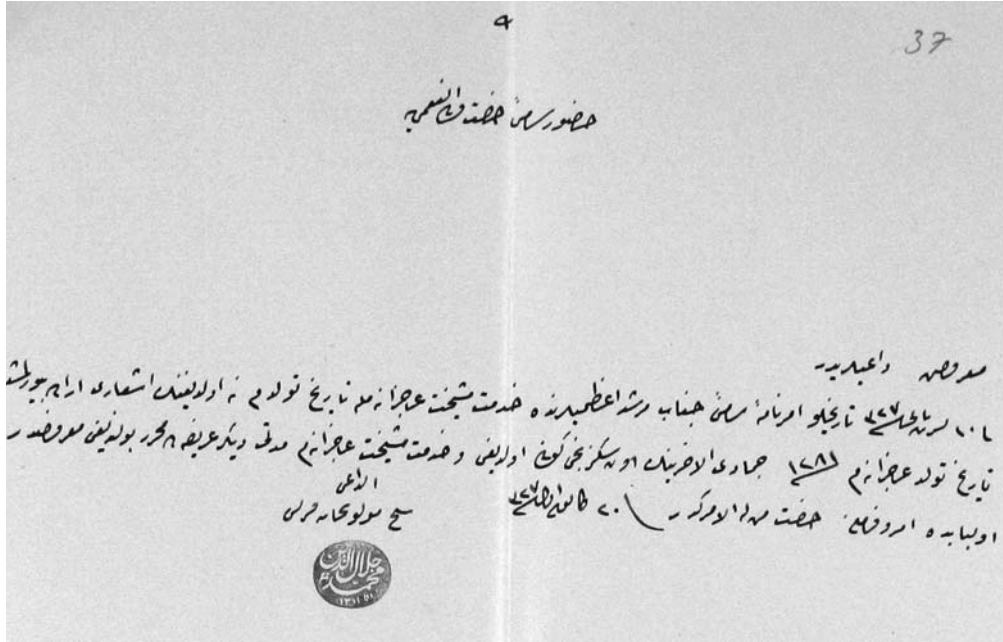 ٩
37
حضور سامئ حضرت ولى النعمى يه
معروض داعيلريدر
تاريخلو امرنامۀ سامئ جناب مرشد اعظميلرنده خدمت مشيخت عاجزانه مله تاريخ تولدم نه اولديغنك اشعارى اراده بيورلمش
تاريخ تولد عاجزانه م ١٢٨١ جمادى الاخرينك اون سكزنجى كونى اولديغى و خدمت مشيخت عاجزانه م مدتى ديكر عريضه ده محرر بولنديغى معروضدر
اولبابده امر و فرمان حضرت من له الامركدر ٢٠ كانون اول
الداعى
شيخ مولويخانه
محمد جلال الدين